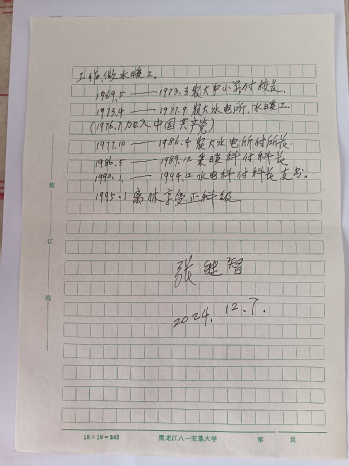 工作,做水暖工。
1969.5 —— 1973.3 农大中小学付校长.
1973.4 —— 1977.9 农大水电所、水暖工.
(1976.7加入中国共产党)
1977.10 —— 1986.4 农大水电所付所长.
1986.5 —— 1989.12 采暖科付科长
1990.1 —— 1994.12 水电科付科长支书.
1995.1 离休享受正科级
张继智
2024.12.7.
装
订
线
18×19=342 黑龙江八一农垦大学 第 页